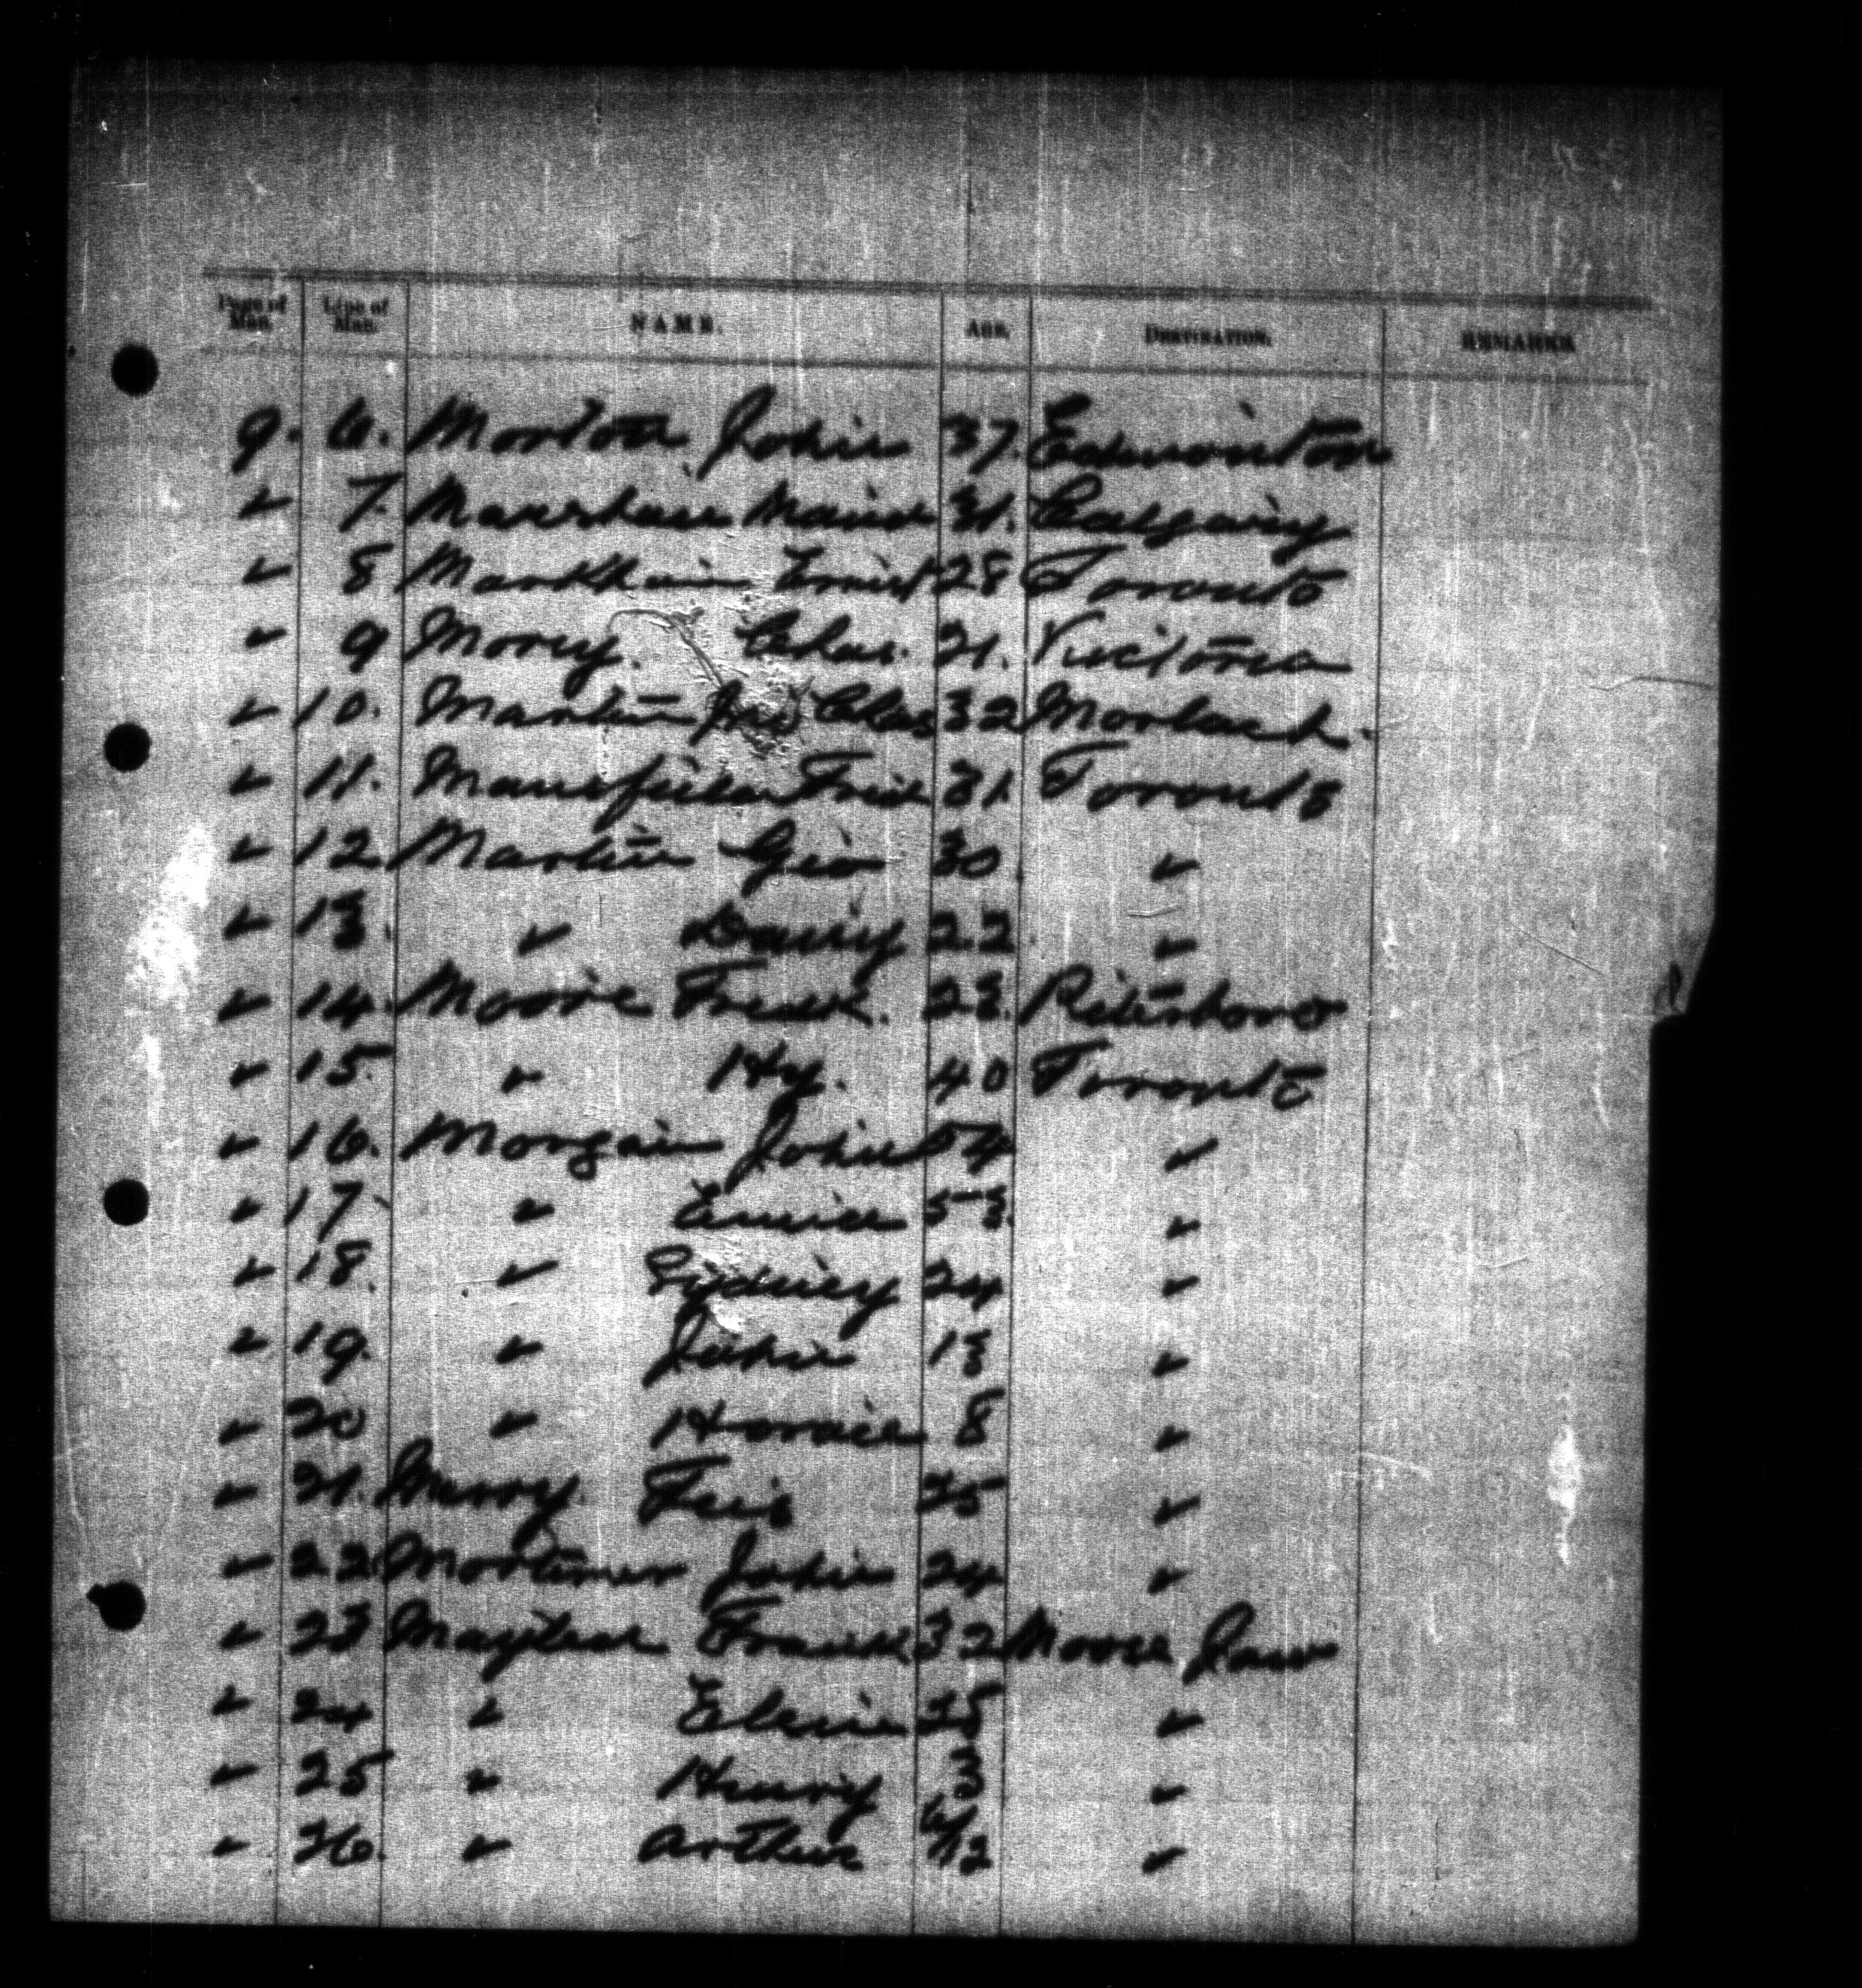 Page of Man. Line of Man. NAME. AGE. DESTINATION. REMARKS
9. 6. Morton John 37. Edmonton
✓ 7. Marshall Maud 31. Calgary
✓ 8 Markham Ernest 28 Toronto
✓ 9 Morey. Chas. 21. Victoria
✓ 10. Martin Jas Chas 32 Mortlach.
✓ 11. Mansfield Fred 31. Toronto
✓ 12. Martin Geo 30. ✓
✓ 13. ✓ Daisy 22. ✓
✓ 14. Moore Fredk. 23. Peterboro
✓ 15. ✓ Hy. 40 Toronto
✓ 16. Morgan John 54 ✓
✓ 17. ✓ 53. ✓
✓ 18. ✓ Sydney 24 ✓
✓ 19. ✓ John 13 ✓
✓ 20 ✓ Horace 8 ✓
✓ 21. 25 ✓
✓ 22. Mortimer John 24 ✓
✓ 23 Frank 32 Moose Jaw
✓ 24 ✓ Elsie 25 ✓
✓ 25 ✓ Henry 3 ✓
✓ 26. ✓ Arthur 6/12 ✓